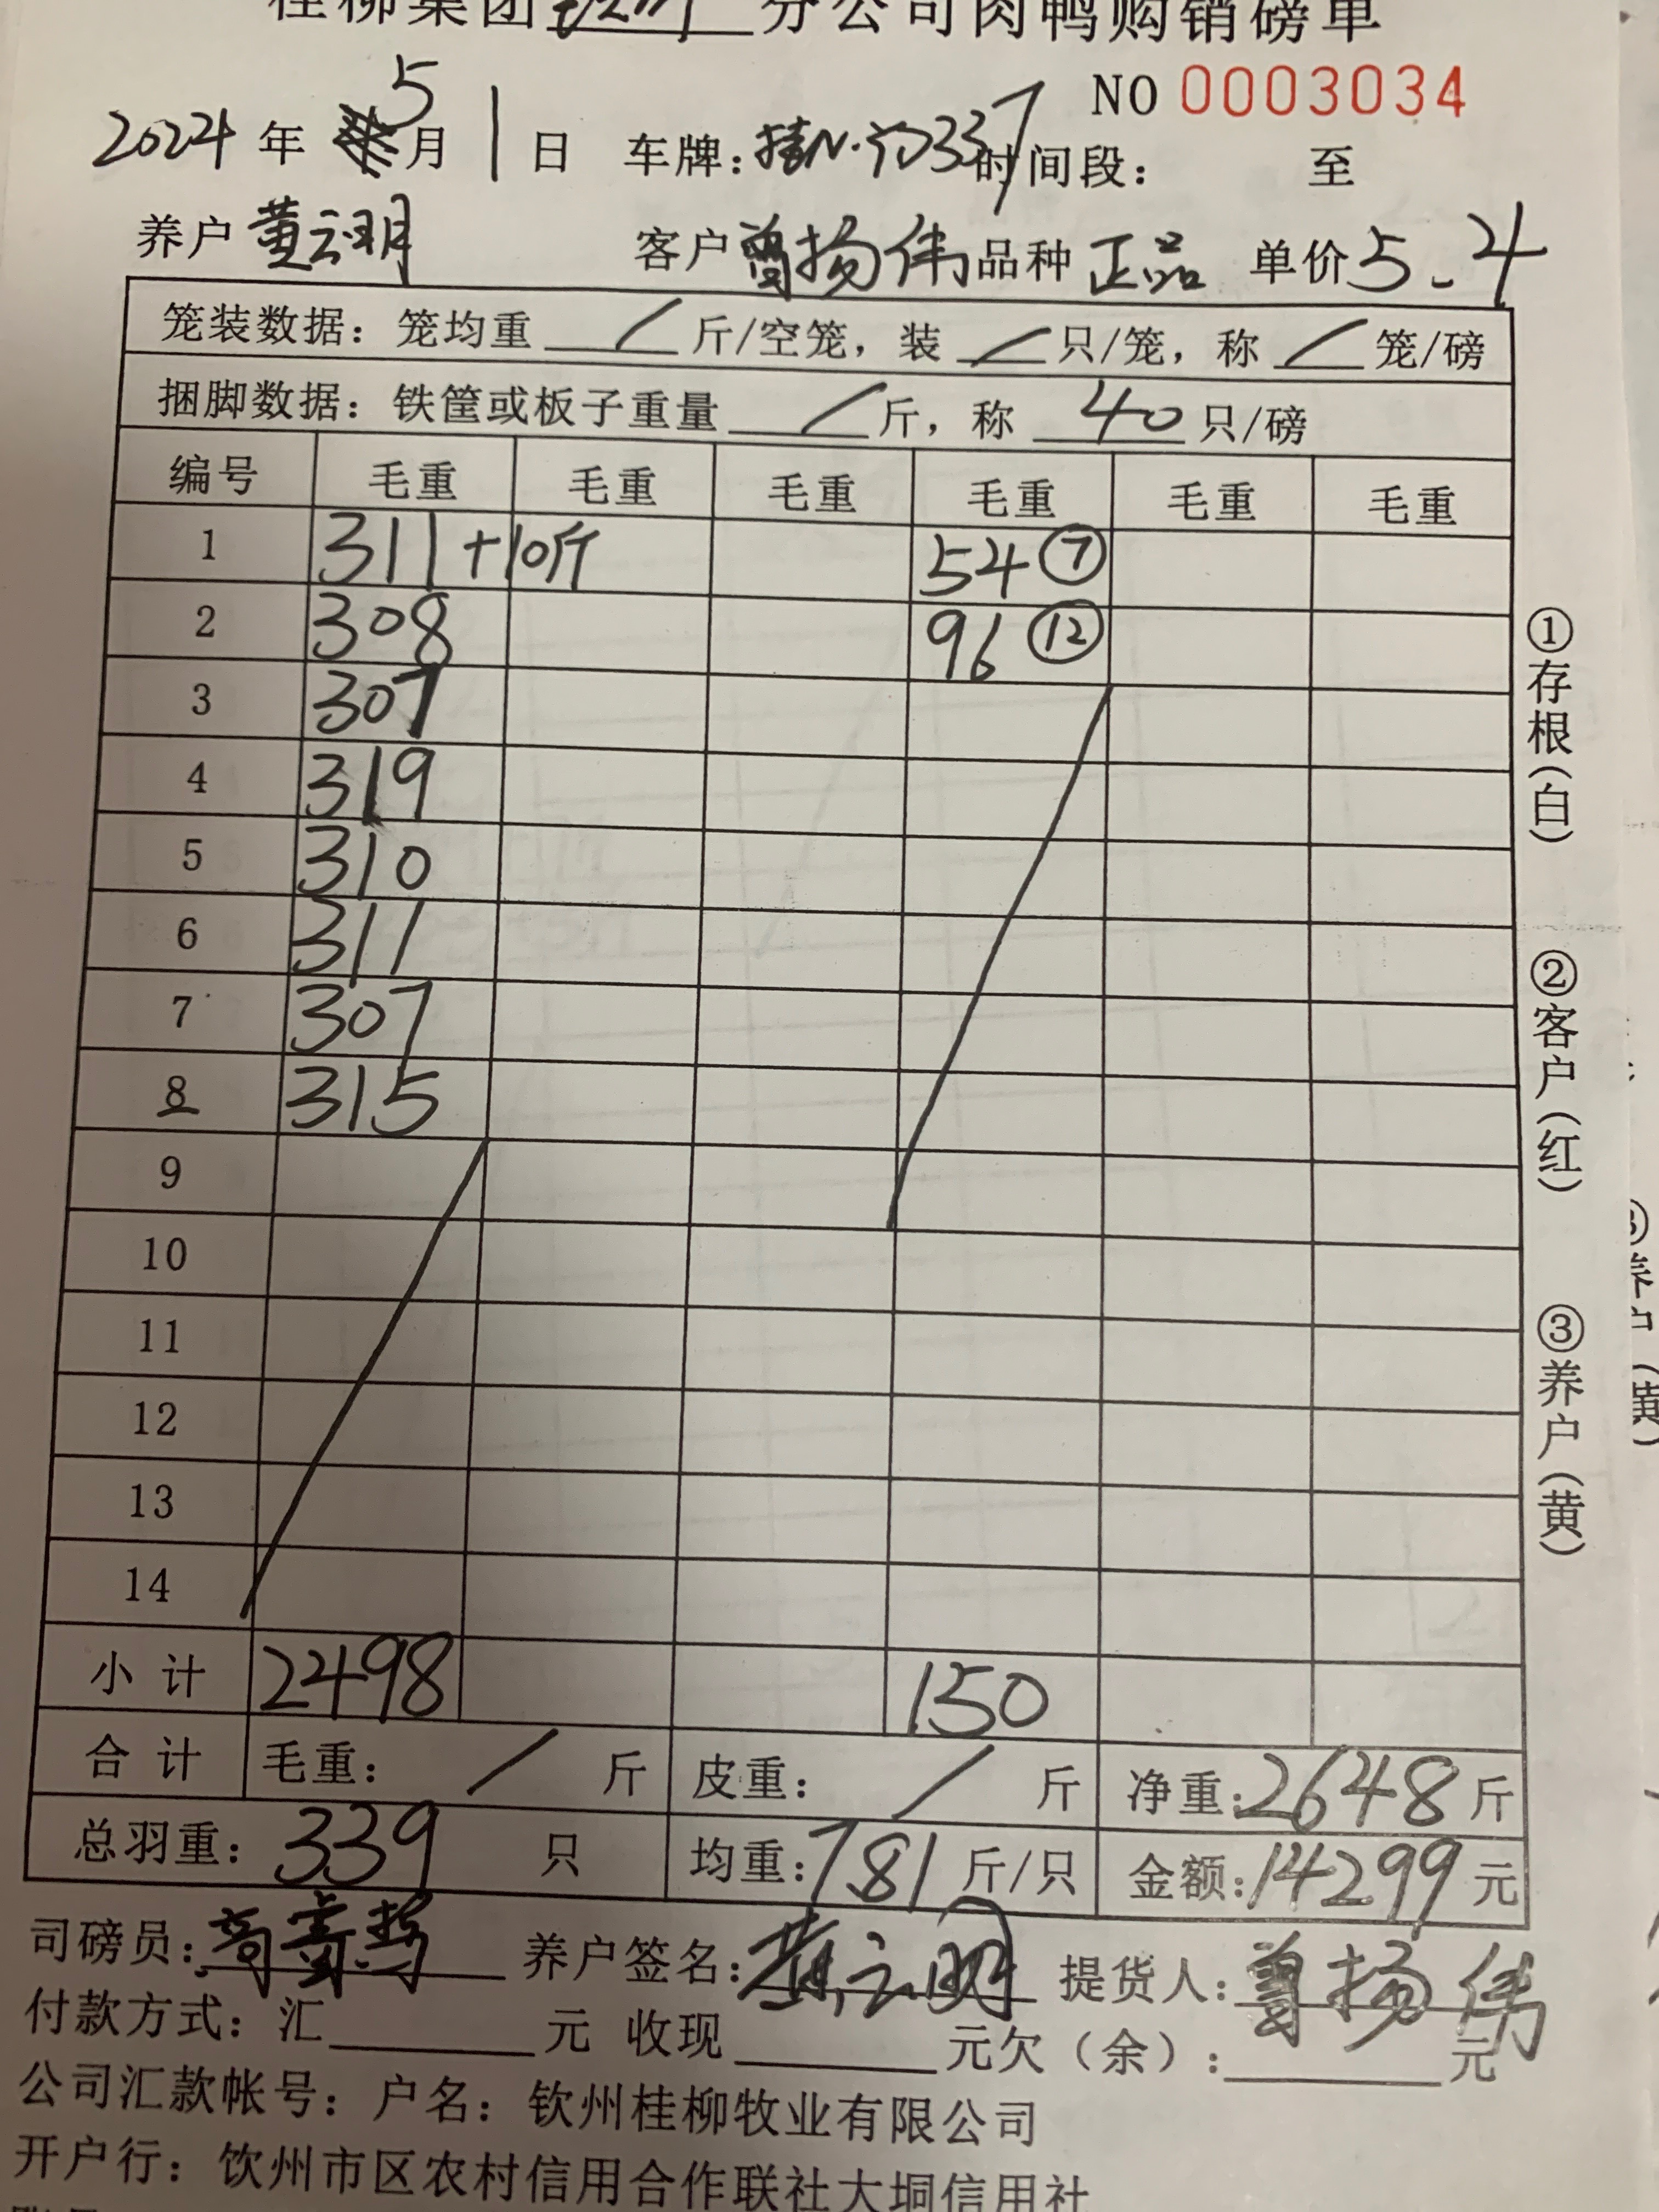 桂柳集团钦州分公司肉鸭购销磅单
NO 0003034
2024年5月1日 车牌: 337 时间段: 至
养户 黄云明 客户 曾扬伟 品种 正品 单价 5.4
笼装数据: 笼均重 / 斤/空笼, 装 / 只/笼, 称 / 笼/磅
捆脚数据: 铁筐或板子重量 / 斤, 称 40 只/磅
编号 毛重 毛重 毛重 毛重 毛重 毛重
1 311+10斤 54 ⑦
2 308 96 ⑫
3 307
4 319
5 310
6 311
7 307
8 315
9
10
11
12
13
14
小计 2498 150
合计 毛重: / 斤 皮重: / 斤 净重: 2648 斤
总羽重: 339 只 均重: 7.81 斤/只 金额: 14299 元
司磅员: 养户签名: 黄云明 提货人: 曾扬伟
付款方式: 汇 元 收现 元 欠(余): 元
公司汇款帐号: 户名: 钦州桂柳牧业有限公司
开户行: 饮州市区农村信用合作联社大垌信用社
①存根(白)
②客户(红)
③养户(黄)
③养户(黄)